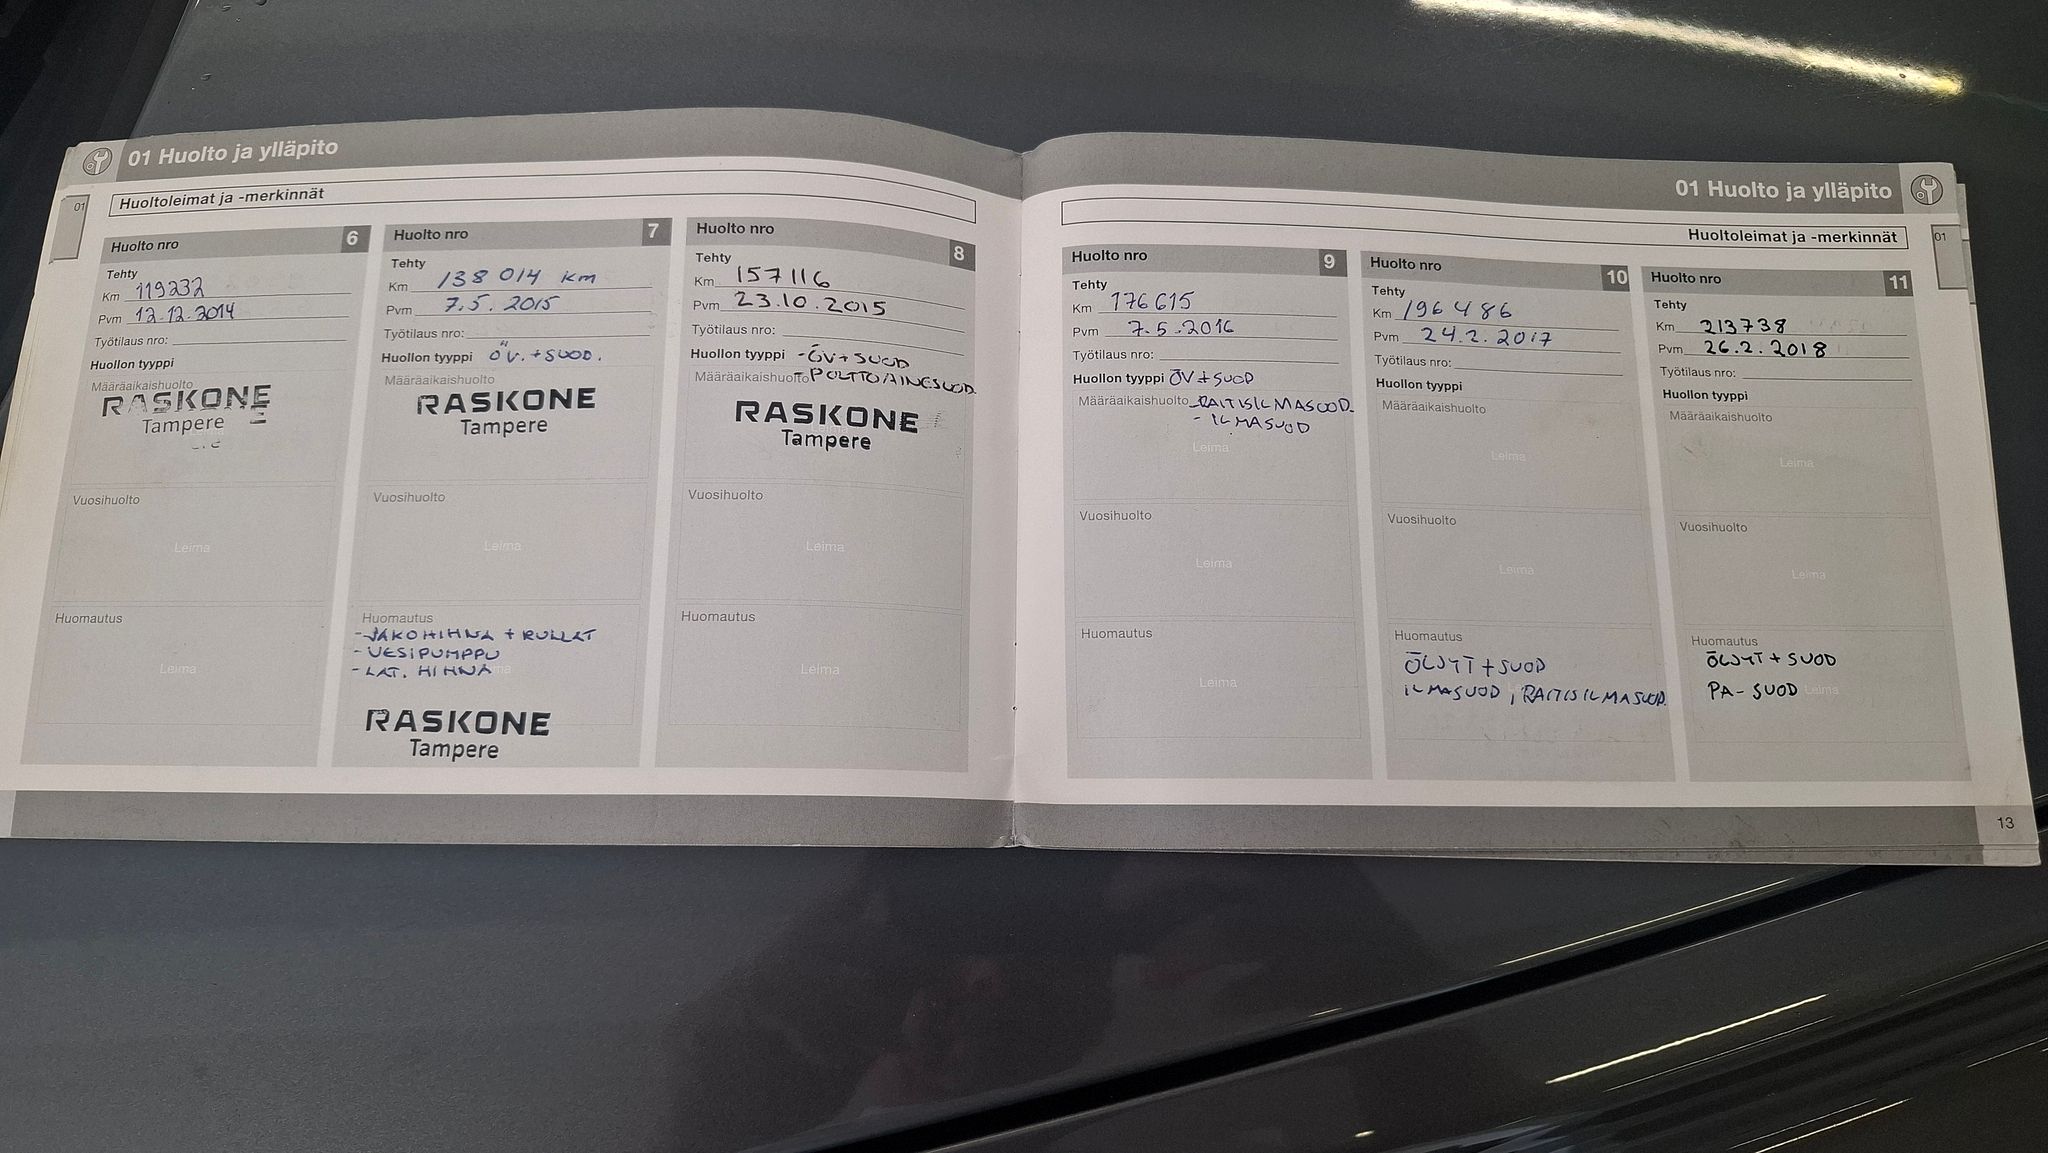 01 Huolto ja ylläpito
Huoltoleimat ja -merkinnät
01
Huolto nro 6
Tehty
Km 119232
Pvm 12.12.2014
Työtilaus nro:
Huollon tyyppi
Määräaikaishuolto
RASKONE
Tampere
Vuosihuolto
Leima
Huomautus
Leima
Huolto nro 7
Tehty
Km 138 014 km
Pvm 7.5. 2015
Työtilaus nro:
Huollon tyyppi ÖV. + SUOD.
Määräaikaishuolto
RASKONE
Tampere
Vuosihuolto
Leima
Huomautus
- JAKOHIHNA + RULLAT
- VESIPUMPPU
- LAT. HIHNA
RASKONE
Tampere
Huolto nro 8
Tehty
Km 157116
Pvm 23.10.2015
Työtilaus nro:
Huollon tyyppi - ÖV + SUOD
Määräaikaishuolto - POLTTOAINESUOD.
RASKONE
Tampere
Vuosihuolto
Leima
Huomautus
Leima
01 Huolto ja ylläpito
Huoltoleimat ja -merkinnät
01
Huolto nro 9
Tehty
Km 176615
Pvm 7.5.2016
Työtilaus nro:
Huollon tyyppi ÖV + SUOD
Määräaikaishuolto - RAITISILMASUOD.
- ILMASUOD
Leima
Vuosihuolto
Leima
Huomautus
Leima
Huolto nro 10
Tehty
Km 196 486
Pvm 24.2.2017
Työtilaus nro:
Huollon tyyppi
Määräaikaishuolto
Leima
Vuosihuolto
Leima
Huomautus
ÖLJYT + SUOD
ILMASUOD, RAITISILMASUOD.
Huolto nro 11
Tehty
Km 213738
Pvm 26.2.2018
Työtilaus nro:
Huollon tyyppi
Määräaikaishuolto
Leima
Vuosihuolto
Leima
Huomautus
ÖLJYT + SUOD
PA- SUOD Leima
13